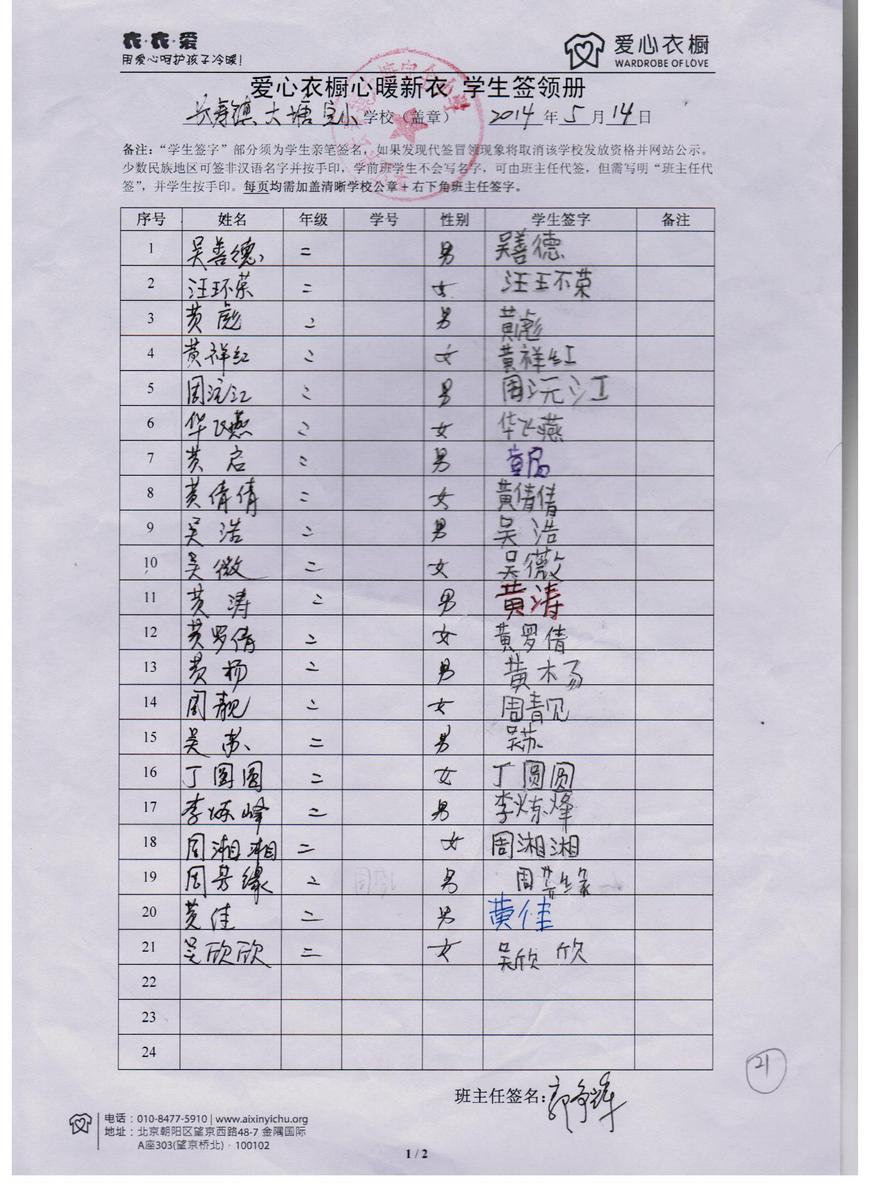 衣·衣·爱
用爱心呵护孩子冷暖!
爱心衣橱
WARDROBE OF LOVE
爱心衣橱心暖新衣 学生签领册
长寿镇大塘完小学校(盖章) 2014年5月14日
备注:“学生签字”部分须为学生亲笔签名,如果发现代签冒领现象将取消该学校发放资格并网站公示。
少数民族地区可签非汉语名字并按手印,学前班学生不会写名字,可由班主任代签,但需写明“班主任代
签”,并学生按手印。每页均需加盖清晰学校公章+右下角班主任签字。
序号 姓名 年级 学号 性别 学生签字 备注
1 吴善德 二 男 吴善德
2 汪环荣 二 女 汪王不荣
3 黄彪 二 男 黄彪
4 黄祥红 二 女 黄祥红
5 周沅江 二 男 周沅江
6 华飞燕 二 女 华飞燕
7 黄启 二 男 黄启
8 黄倩倩 二 女 黄倩倩
9 吴浩 二 男 吴浩
10 吴微 二 女 吴薇
11 黄涛 二 男 黄涛
12 黄罗倩 二 女 黄罗倩
13 黄杨 二 男 黄杨
14 周靓 二 女 周靓
15 吴苏 二 男 吴苏
16 丁圆圆 二 女 丁圆圆
17 李炼峰 二 男 李炼烽
18 周湘湘 二 女 周湘湘
19 周芳缘 二 男 周芳缘
20 黄佳 二 男 黄佳
21 吴欣欣 二 女 吴欣欣
22
23
24
21
班主任签名:
电话:010-8477-5910 | www.aixinyichu.org
地址:北京朝阳区望京西路48-7 金隅国际
A座303(望京桥北)·100102
1 / 2